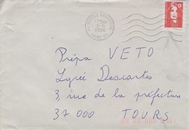 Prépa VETO
Lycée Descartes
3, rue de la préfecture
37000 TOURS